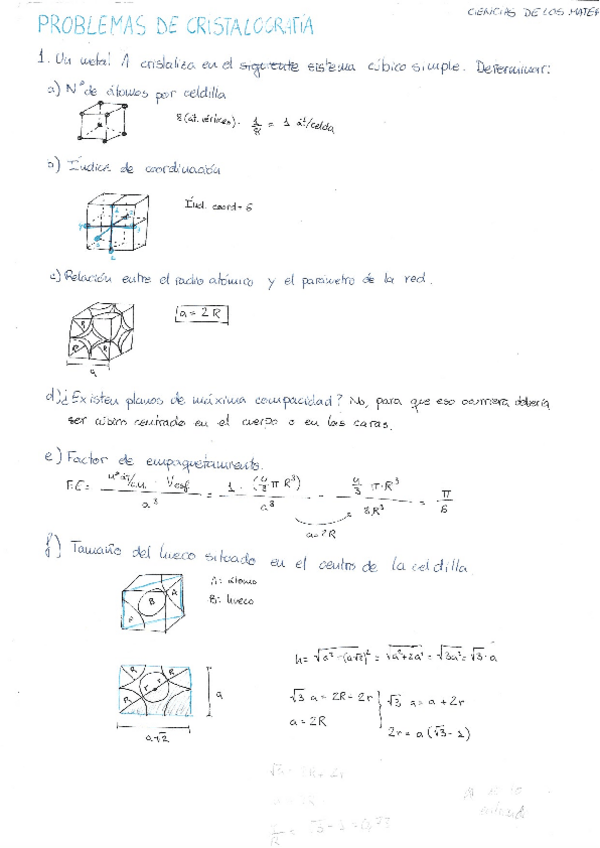 PROBLEMAS DE CRISTALOGRAFÍA
CIENCIAS DE LOS MATER
1. Un metal A cristaliza en el siguiente sistema cúbico simple. Determinar:
a) Nº de átomos por celdilla
8 (at. vértices) · 1/8 = 1 át/celda
b) Índice de coordinación
Índ. coord = 6
c) Relación entre el radio atómico y el parámetro de la red.
R
R R
a = 2R
a
d) ¿Existen planos de máxima compacidad? No, para que eso ocurriera debería
ser cúbico centrado en el cuerpo o en las caras.
e) Factor de empaquetamiento.
F.C = nº át/c.u. · Vesf / a³ = 1 · (4/3 π R³) / a³ = 4/3 π · R³ / 8R³ = π/6
a=2R
f) Tamaño del hueco situado en el centro de la celdilla
A: átomo
B: hueco
B A
R R
r r
R R
a
a√2
h = √a² + (a√2)² = √a² + 2a² = √3a² = √3 · a
√3 a = 2R + 2r
√3 a = a + 2r
a = 2R
2r = a (√3 - 1)